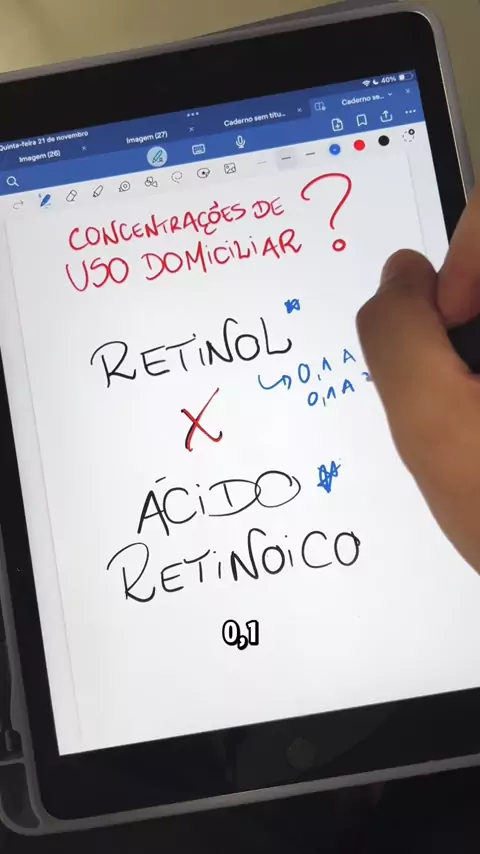 40%
Quinta-feira 21 de novembro
Imagem (26)
Imagem (27)
Caderno sem títu...
Caderno se...
CONCENTRAÇÕES DE
USO DOMICILIAR ?
RETINOL
0,1 A
0,1 A
X
ÁCIDO
RETINOICO
0,1